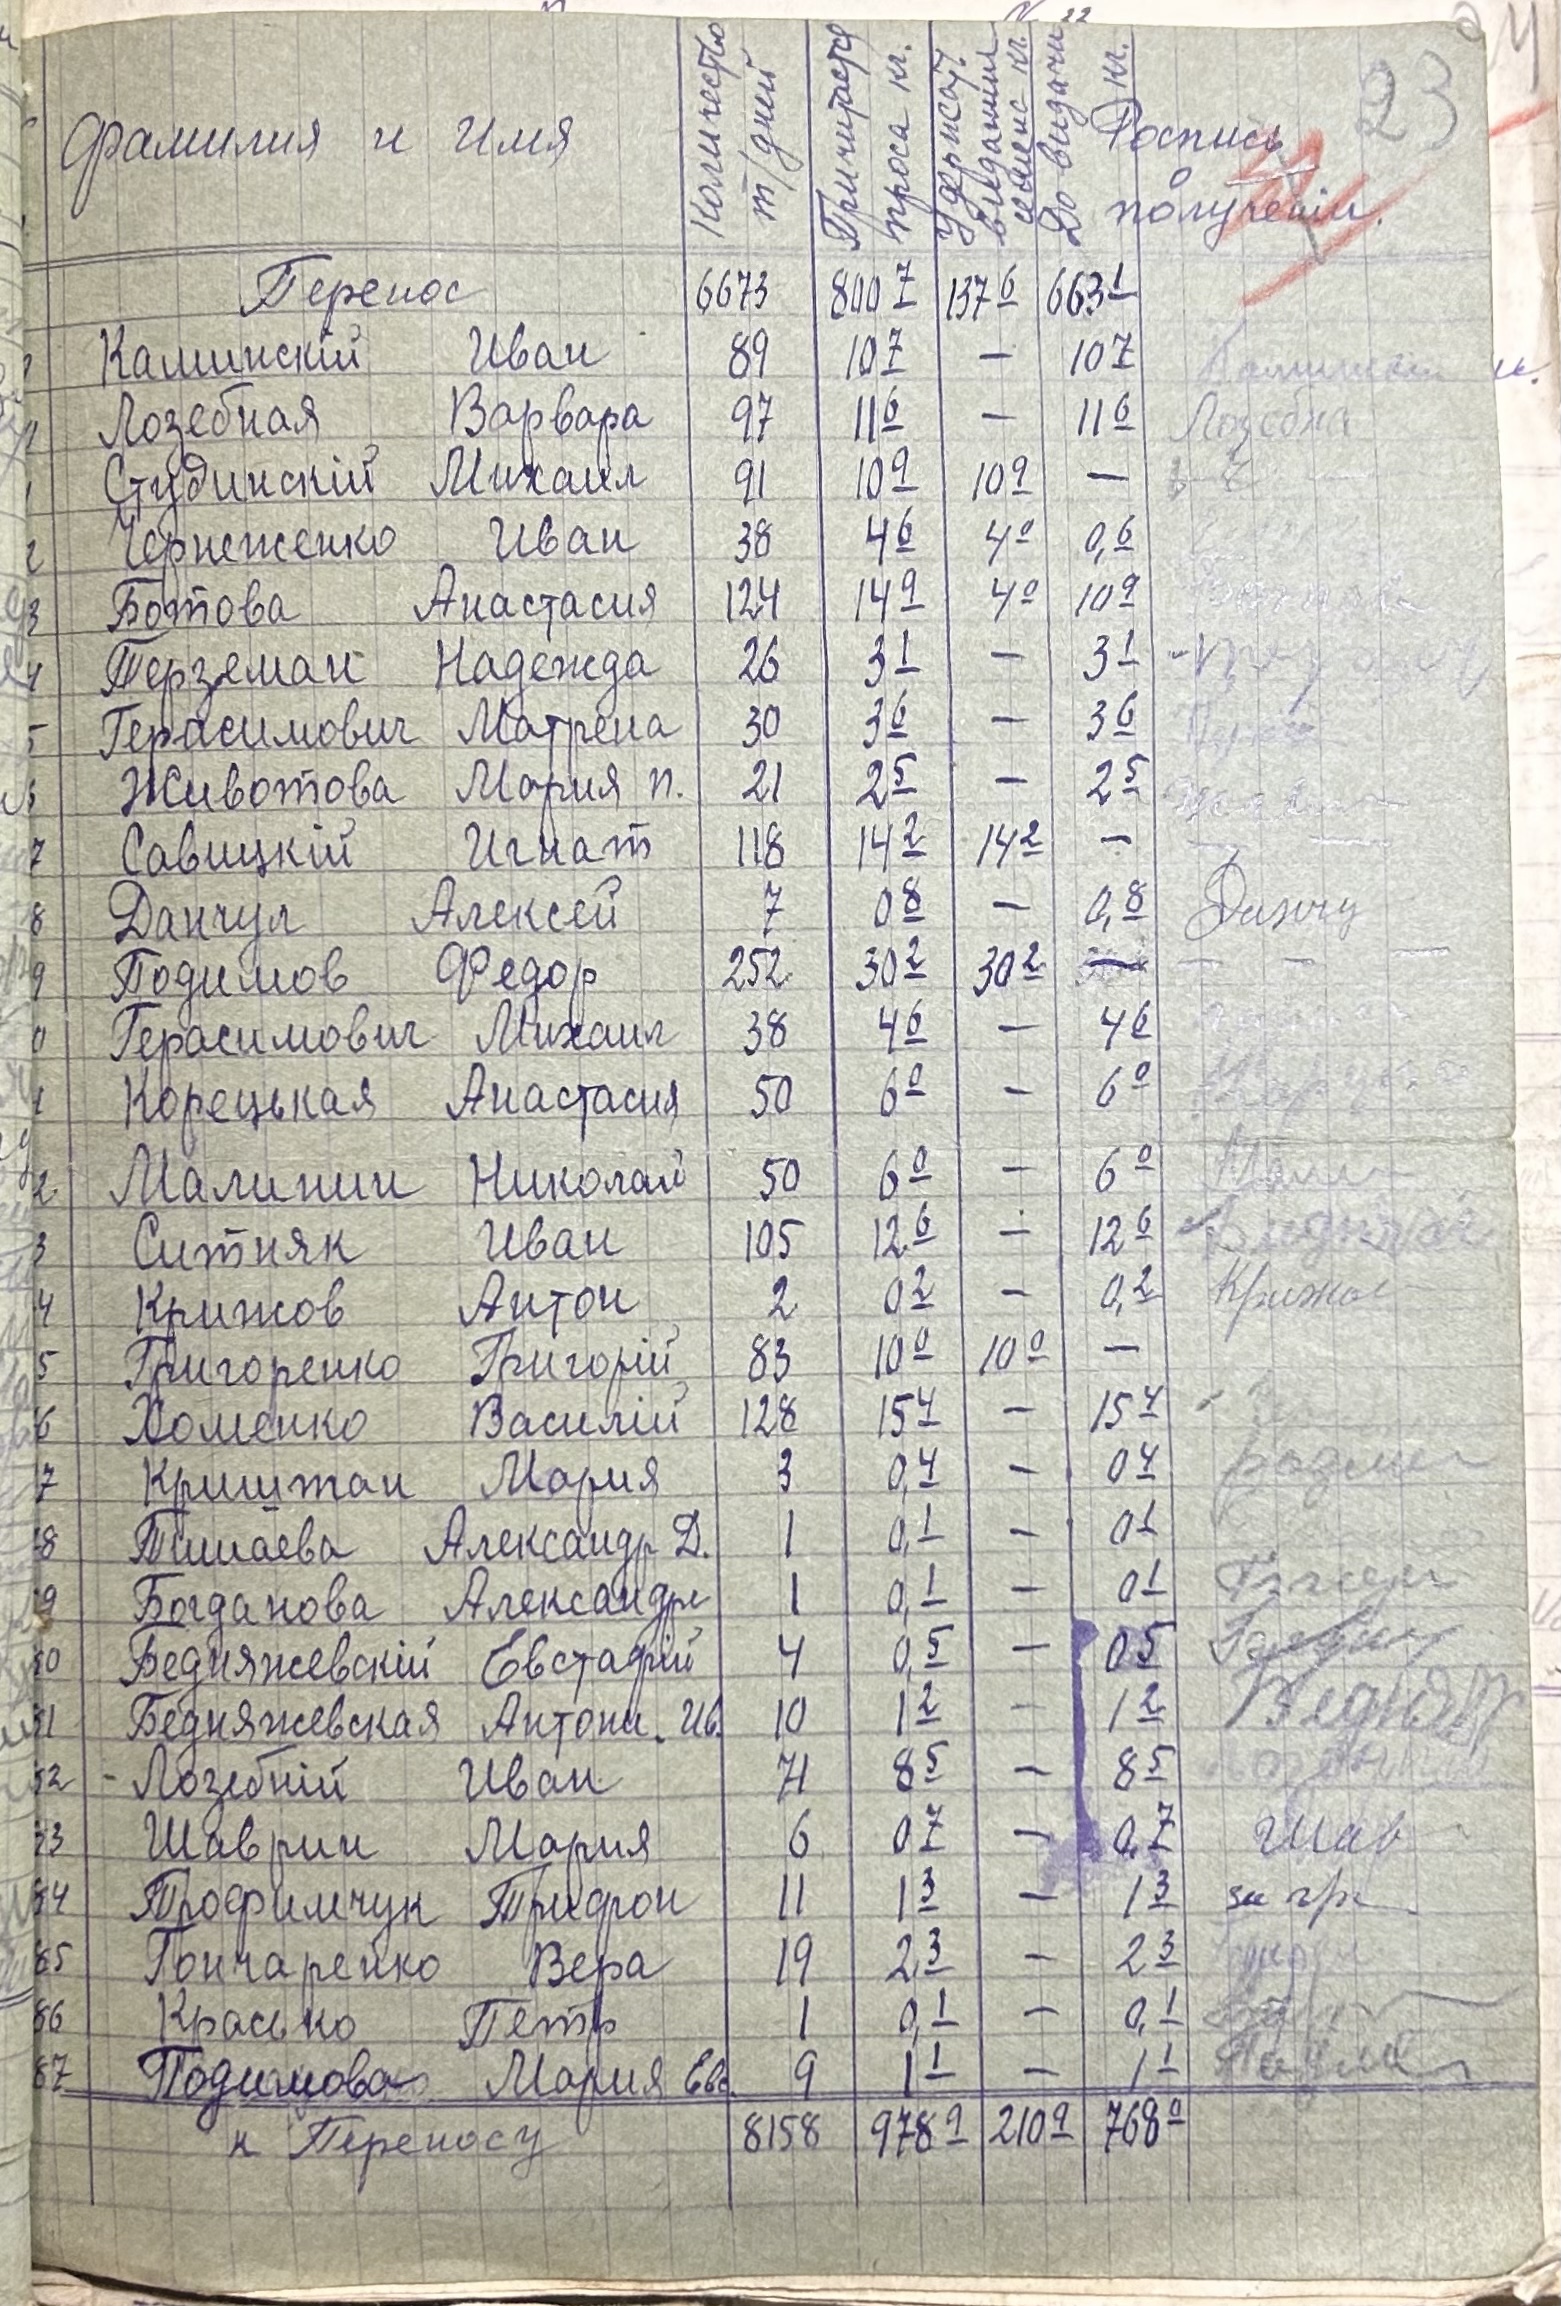 23
Фамилия и Имя Количество т/дней Причитается проса кг. Удержать выданний аванс кг. До видачи кг. Роспись о получении.
Перенос 6673 800 7 137 6 663 1
Каминскій Иван 89 10 7 — 10 7
Лозебная Варвара 97 11 6 — 11 6 Лозебна
Студинскій Михаил 91 10 9 10 9 —
2 Чернеженко Иван 38 4 6 4 0 0,6
3 Ботова Анастасия 124 14 9 4 0 10 9
4 Терземан Надежда 26 3 1 — 3 1
5 Герасимович Матрена 30 3 6 — 3 6
6 Животова Мария П. 21 2 5 — 2 5
7 Савицкій Игнат 118 14 2 14 2 —
8 Данчул Алексей 7 0 8 — 0,8 Данчу
9 Подимов Федор 252 30 2 30 2 — — — —
0 Герасимович Михаил 38 4 6 — 4 6
1 Корецькая Анастасия 50 6 0 — 6 0
2 Малинин Николай 50 6 0 — 6 0 Мали
3 Ситняк Иван 105 12 6 — 12 6
4 Крижов Антон 2 0 2 — 0,2 Крижов
5 Григоренко Григорій 83 10 0 10 0 —
6 Хоменко Василій 128 15 4 — 15 4
7 Криштан Мария 3 0,4 — 0 4
8 Тишаева Александр Д. 1 0,1 — 0 1
9 Богданова Александра 1 0,1 — 0 1
80 Бедняжевскій Евстафій 4 0,5 — 0 5
81 Бедняжевская Антони. Ив. 10 1 2 — 1 2 Бедняж
82 Лозебній Иван 71 8 5 — 8 5
83 Шаврин Мария 6 0 7 — 0,7 Шав
84 Трофимчук Трифон 11 1 3 — 1 3
85 Гончаренко Вера 19 2 3 — 2 3
86 Красько Петр 1 0,1 — 0,1
87 Подимова Мария Евс. 9 1 1 — 1 1
к Переносу 8158 978 9 210 9 768 0